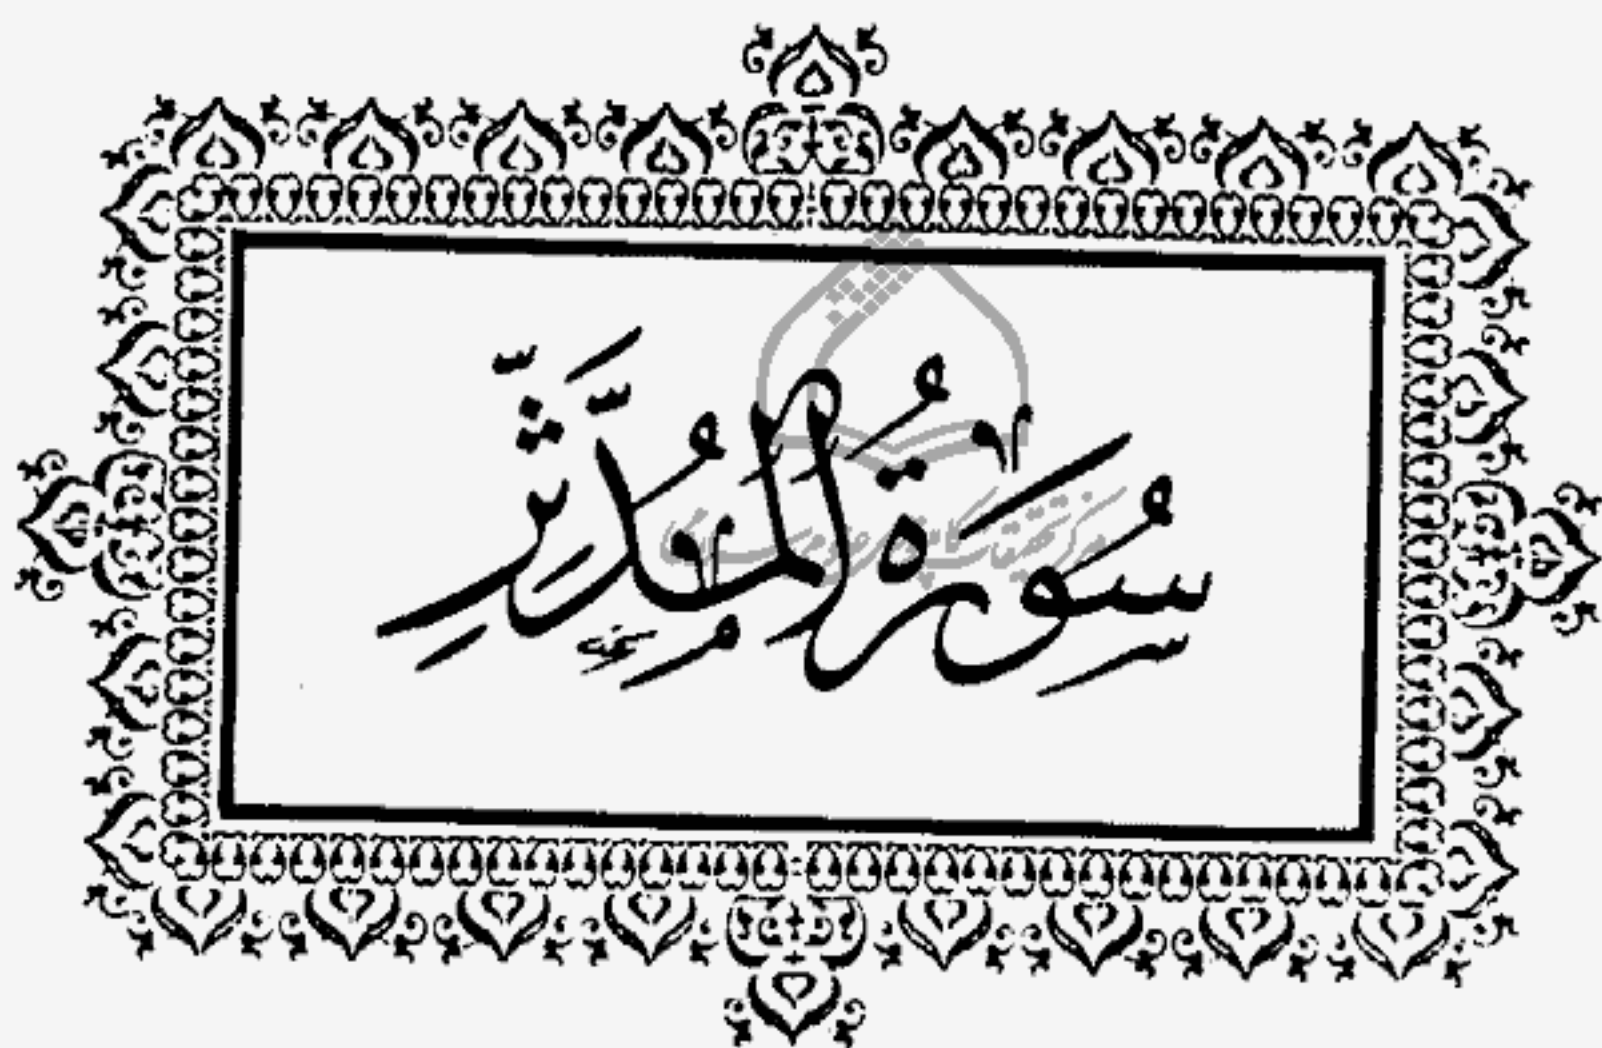 سُورَةُ الْمُدَّثِّرِ
مرکز تحقیقات کامپیوتری علوم اسلامی